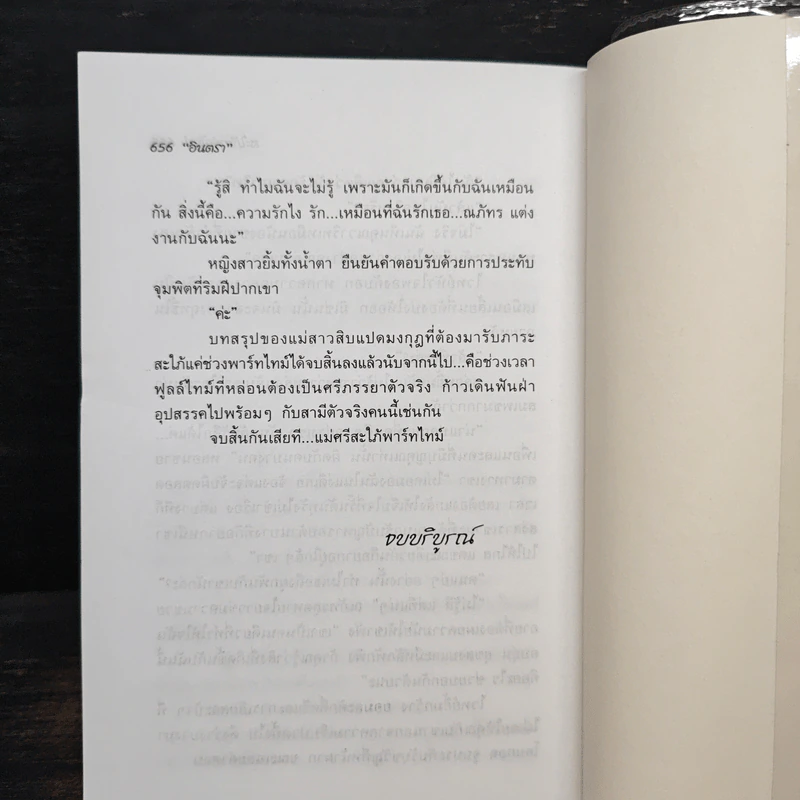 656 "อินตรา"
"รู้สิ ทำไมฉันจะไม่รู้ เพราะมันก็เกิดขึ้นกับฉันเหมือน
กัน สิ่งนี้คือ...ความรักไง รัก...เหมือนที่ฉันรักเธอ...ณภัทร แต่ง
งานกับฉันนะ"
หญิงสาวยิ้มทั้งน้ำตา ยืนยันคำตอบรับด้วยการประทับ
จุมพิตที่ริมฝีปากเขา
"ค่ะ"
บทสรุปของแม่สาวสิบแปดมงกุฎที่ต้องมารับภาระ
สะใภ้แค่ช่วงพาร์ทไทม์ได้จบสิ้นลงแล้วนับจากนี้ไป...คือช่วงเวลา
ฟูลล์ไทม์ที่หล่อนต้องเป็นศรีภรรยาตัวจริง ก้าวเดินฟันฝ่า
อุปสรรคไปพร้อมๆ กับสามีตัวจริงคนนี้เช่นกัน
จบสิ้นกันเสียที...แม่ศรีสะใภ้พาร์ทไทม์
จบบริบูรณ์